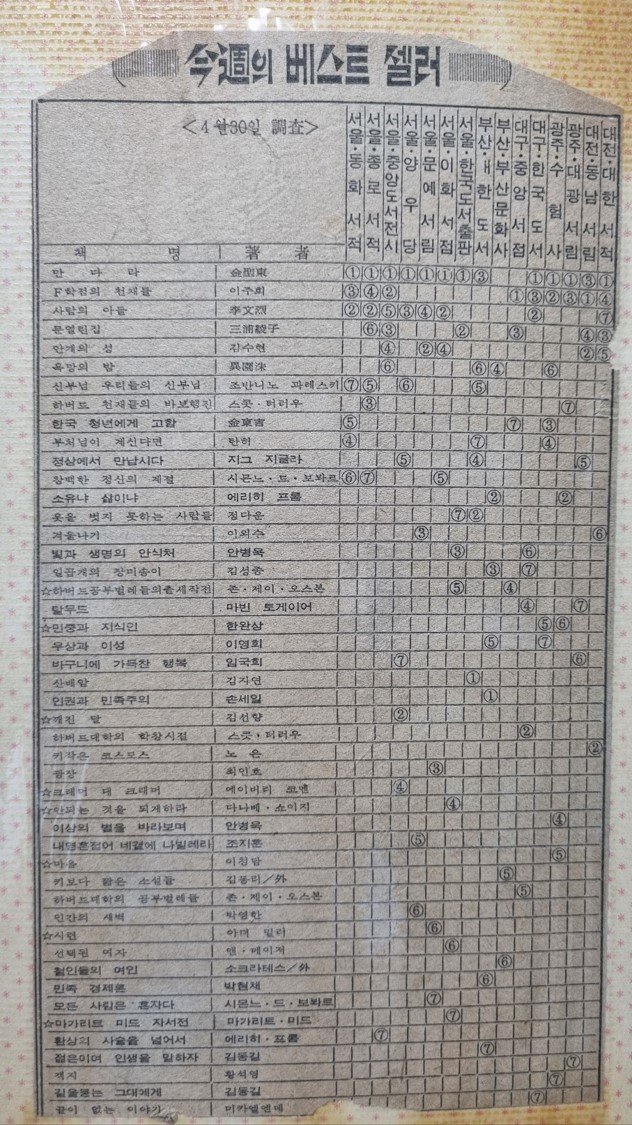 今週의 베스트 셀러
<4월30일 調査>
서울·동화서적 서울·종로서적 서울·중앙도서전시 서울·양우당 서울·문예서림 서울·이화서점 서울·한국도서출판 부산·대한도서 부산·부산문화사 대구·중앙서점 대구·한국도서 광주·수험사 광주·대광서림 대전·동남서림 대전·대한서적
책 명 著 者
만다라 金聖東 ① ① ① ① ① ① ① ③ ① ① ① ③ ①
F학점의 천재들 이주희 ③ ④ ② ① ③ ② ③ ① ④
사람의 아들 李文烈 ② ② ⑤ ③ ④ ② ② ⑦
문열린집 三浦綾子 ⑥ ③ ② ③ ④ ③
안개의 성 김수현 ④ ② ④ ② ⑤
욕망의 밤 ⑥ ⑥ ④ ⑥
신부님 우리들의 신부님 조반니노 과레스키 ⑦ ⑤ ⑥ ⑤
하버드 천재들의 바보행진 스콧·터러우 ③ ⑦
한국 청년에게 고함 金東吉 ⑤ ⑦ ③
부처님이 계신다면 탄허 ④ ⑦ ④
정상에서 만납시다 지그 지글라 ⑤ ④ ⑤
창백한 정신의 계절 시몬느·드·보봐르 ⑥ ⑦ ⑤
소유냐 삶이냐 에리히 프롬 ② ②
옷을 벗지 못하는 사람들 정다운 ⑦ ②
겨울나기 이외수 ③ ⑥
빛과 생명의 안식처 안병욱 ③ ⑥
일곱개의 장미송이 김성종 ③ ⑦
☆하버드공부벌레들의출세작전 존·제이·오스본 ⑤ ④
탈무드 마빈 토케이어 ④ ⑦
☆민중과 지식인 한완상 ⑤ ⑥
우상과 이성 이영희 ⑤ ⑦
바구니에 가득찬 행복 임국희 ⑦ ⑥
산배암 김자연 ①
인권과 민족주의 손세일 ①
☆깨진 달 김선향 ②
하버드대학의 학창시절 스콧·터러우 ②
키작은 코스모스 노은 ②
광장 최인훈 ③
☆크레머 대 크레머 에이버리 코맨 ④
☆안되는 것을 되게하라 다나베·쇼이지 ④
이상의 별을 바라보며 안병욱 ④
내영혼접어 네곁에 나빌레라 조지훈 ⑤
☆마음 이청담 ⑤
키보다 짧은 소설들 김동리/外 ⑤
하버드대학의 공부벌레들 존·제이·오스본 ⑤
인간의 새벽 박영한 ⑥
☆시련 아더 밀러 ⑥
선택된 여자 앤·메이저 ⑥
철인들의 여인 소크라테스/外 ⑥
민족 경제론 박현채 ⑥
모든 사람은 혼자다 시몬느·드·보봐르 ⑦
☆마가리트 미드 자서전 마가리트·미드 ⑦
환상의 사슬을 넘어서 에리히·프롬 ⑦
젊은이여 인생을 말하자 김동길 ⑦
객지 황석영 ⑦ ⑦
길을묻는 그대에게 김동길 ⑦
끝이 없는 이야기 미카엘엔데